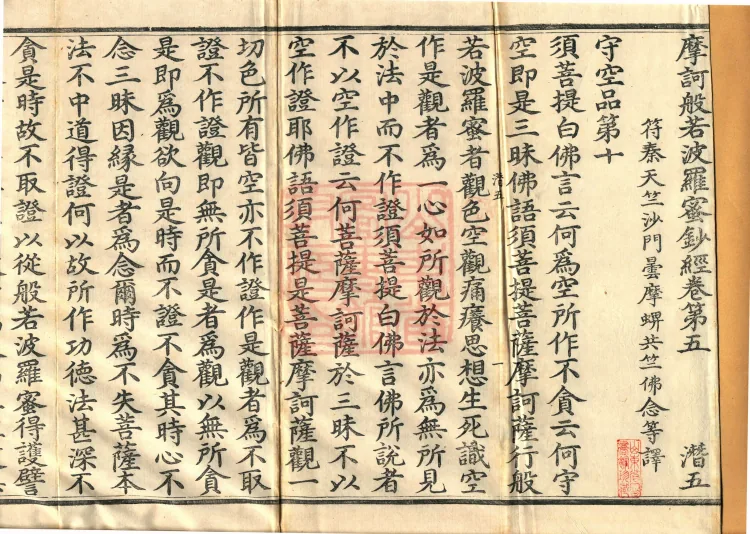 摩訶般若波羅蜜鈔經卷第五 潛五
符秦天竺沙門曇摩蜱共竺佛念等譯
守空品第十
須菩提白佛言云何爲空所作不貪云何守
空即是三昧佛語須菩提菩薩摩訶薩行般
潛五 一
若波羅蜜者觀色空觀痛癢思想生死識空
作是觀者爲一心如所觀於法亦爲無所見
於法中而不作證須菩提白佛言佛所說者
不以空作證云何菩薩摩訶薩於三昧不以
空作證耶佛語須菩提是菩薩摩訶薩觀一
切色所有皆空亦不作證作是觀者爲不取
證不作證觀即無所貪是者爲觀以無所貪
是即爲觀欲向是時而不證不貪其時心不
念三昧因緣是者爲念爾時爲不失菩薩本
法不中道得證何以故所作功德法甚深不
貪是時故不取證以從般若波羅蜜得護譬